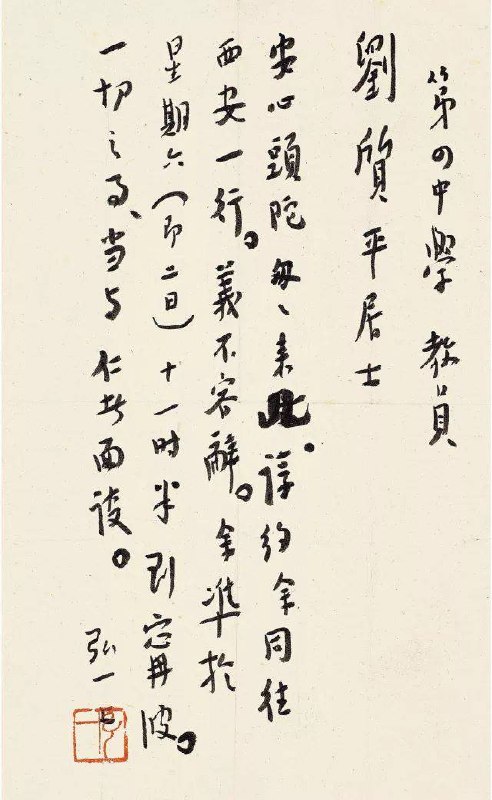 第四中學 教員
劉質平居士
安心頭陀匆々来此。諄約余同往
西安一行。義不容辭。余準於
星期六（即二日）十一时半到寧波。
一切之事、当与仁者面談。
弘一